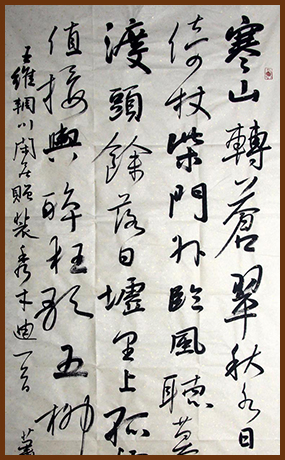 寒山轉蒼翠秋水日
倚杖柴門外臨風聽
渡頭餘落日墟里上孤
值接輿醉狂歌五柳
王維輞川閑居贈裴秀才迪一首